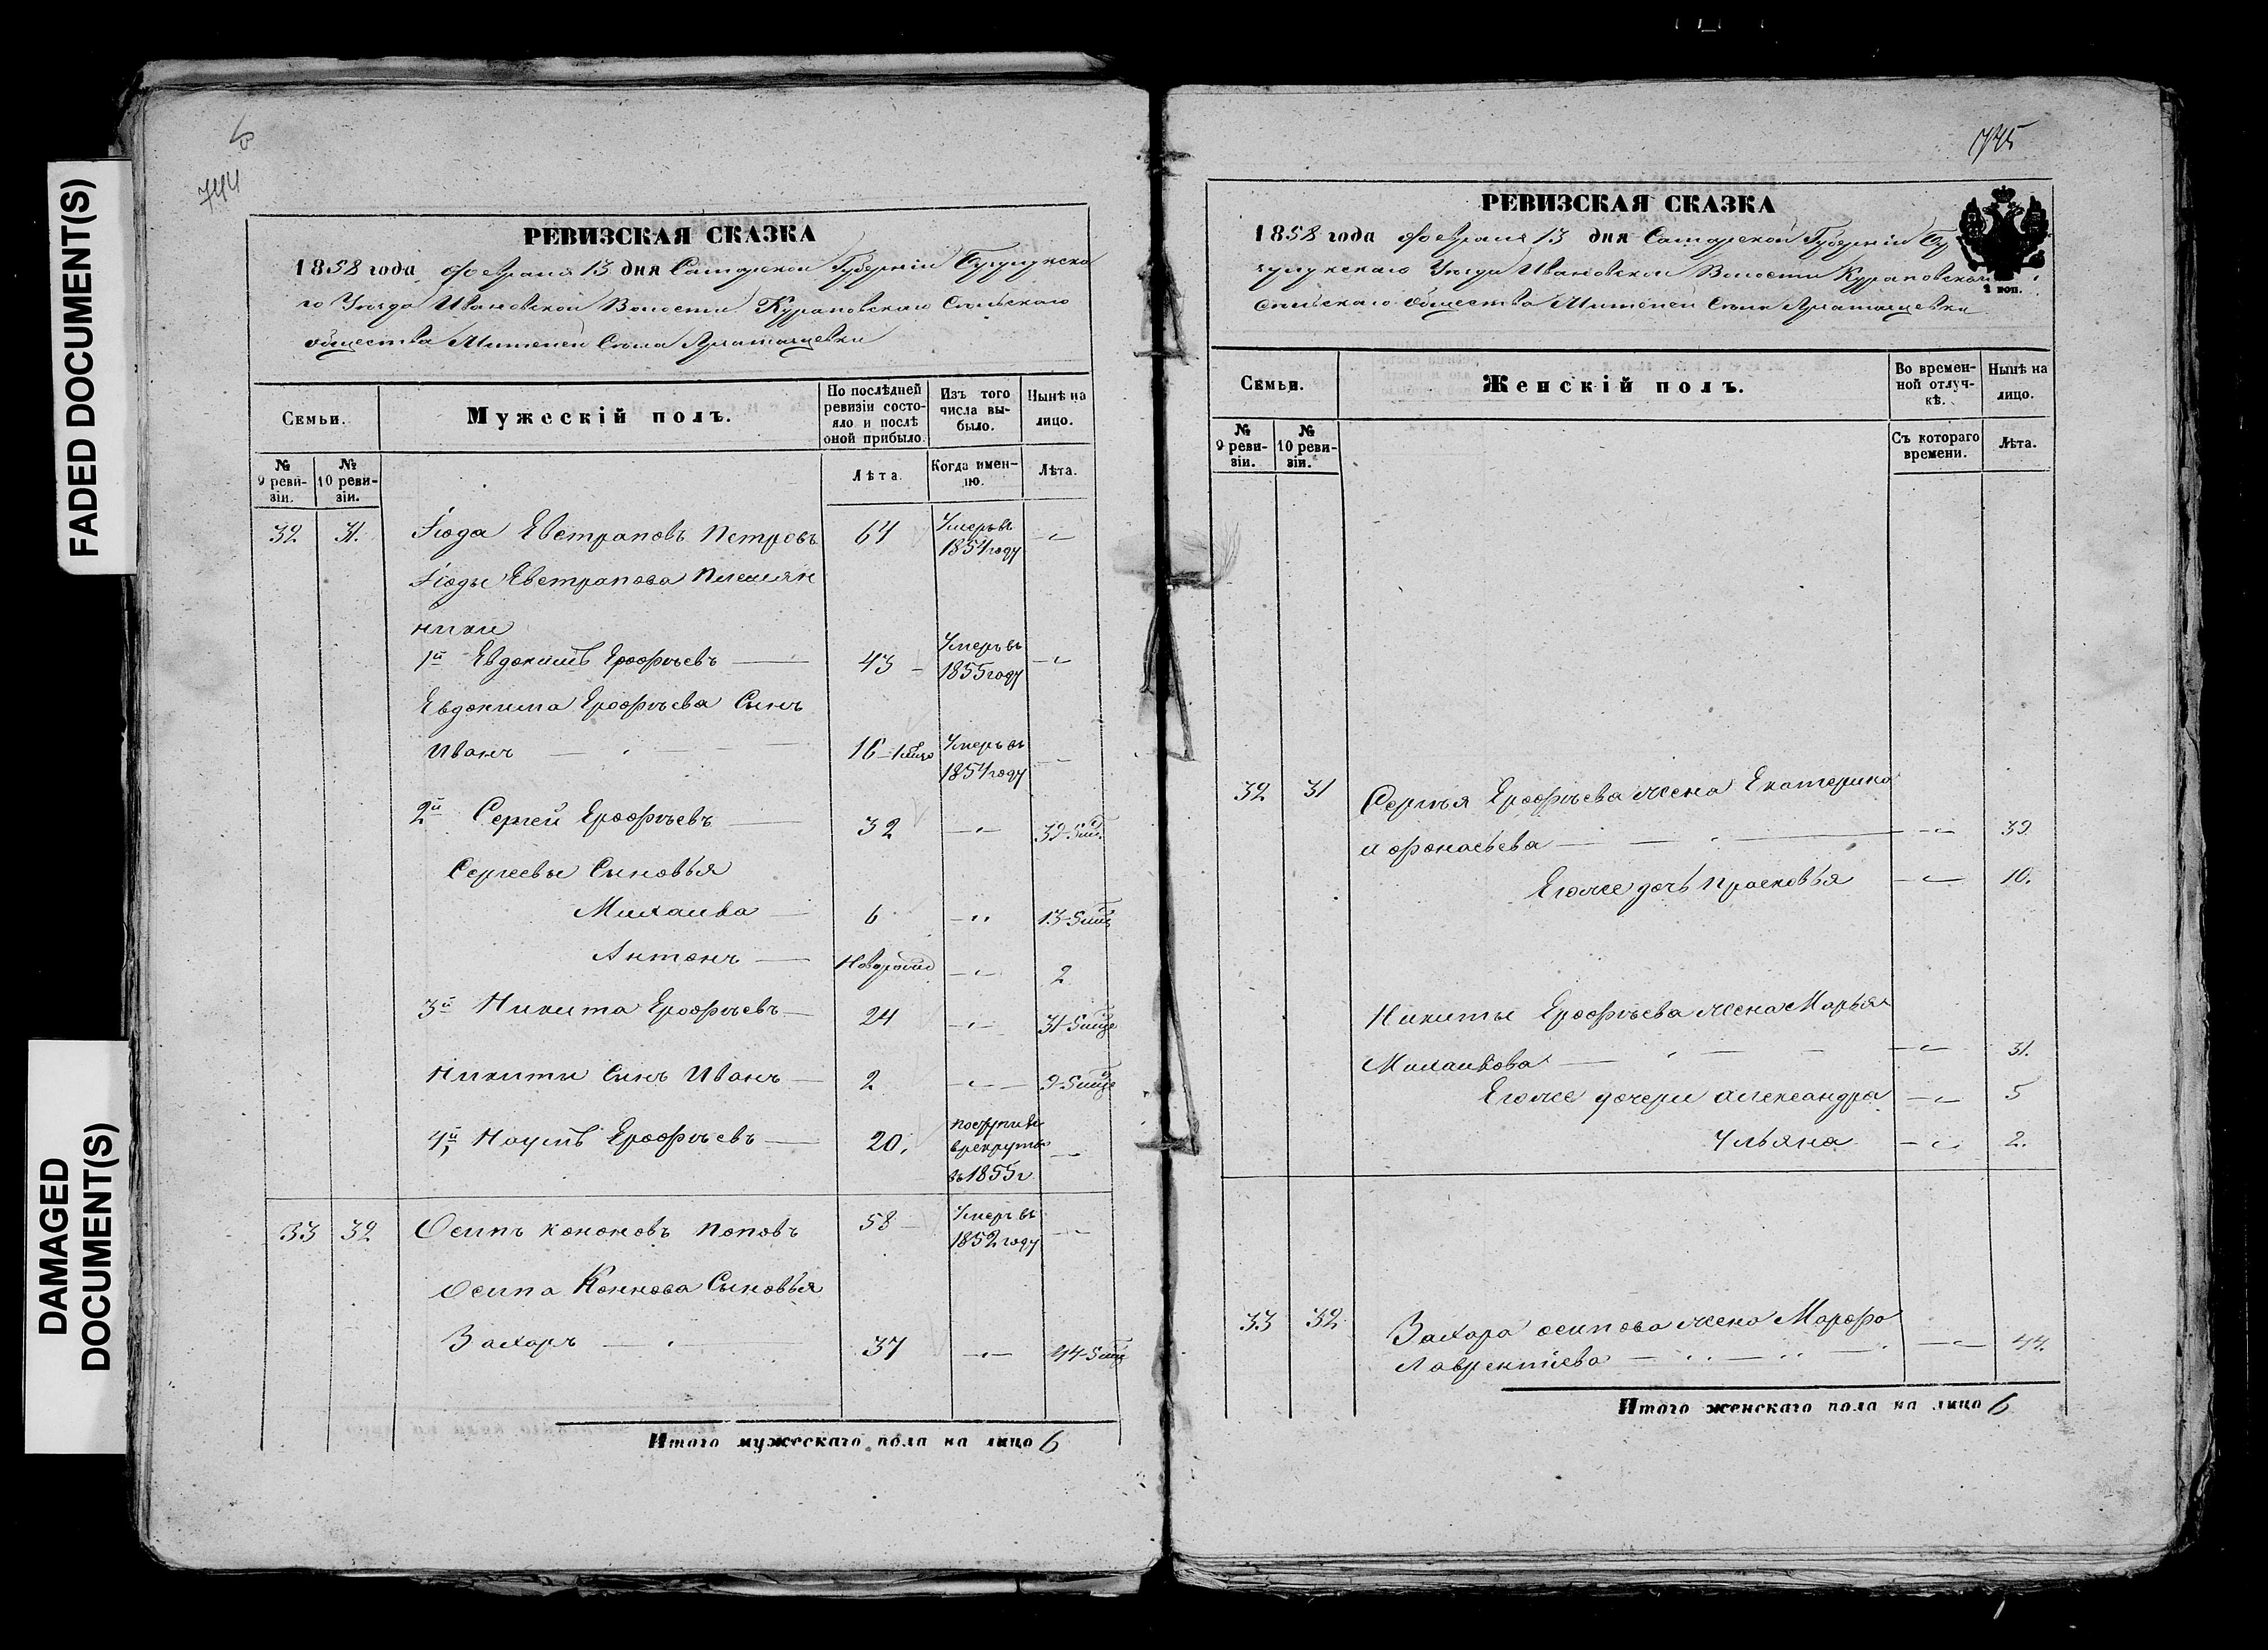 FADED DOCUMENT(S)
DAMAGED
DOCUMENT(S)
6
744
РЕВИЗСКАЯ СКАЗКА
1858 года февраля 13 дня Самарской Губерніи Бузулукска
го Уезда Ивановской Волости Курановскаго Сельскаго
общества Села
Семьи.
Мужескій полъ.
По послѣдней ревизіи состояло и послѣ оной прибыло.
Изъ того числа выбыло.
Нынѣ на лицо.
№ 9 ревизіи.
№ 10 ревизіи.
Лѣта.
Когда именно.
Лѣта.
32 31. Евстраповъ Петровъ 64 Умеръ въ 1854 году
Евстрапова Племян
ники
1й Евдокимъ Ерофѣевъ 43 Умеръ въ 1855 году
Евдокима Ерофѣева Сынъ
Иванъ 16 Умеръ въ 1854 году
2й Сергей Ерофѣевъ 32 39
Сергеевы Сыновья
Михаила 6 13
Антонъ Новорожд 2
3й Никита Ерофѣевъ 24 31
Никиты Сынъ Иванъ 2 9
4й Наумъ Ерофѣевъ 20 поступилъ врекруты въ 1855 г
33 32 Осипъ Кононовъ Поповъ 58 Умеръ въ 1852 году
Осипа Коннова Сыновья
Захаръ 37 44
Итого мужескаго пола на лицо 6
745
РЕВИЗСКАЯ СКАЗКА
1858 года февраля 13 дня Самарской Губерніи Бу
зулукскаго Уезда Ивановской Волости Курановскаго
сельскаго общества Села
2 коп.
Семьи.
Женскій полъ.
Во временной отлучкѣ.
Нынѣ на лицо.
№ 9 ревизіи.
№ 10 ревизіи.
Съ котораго времени.
Лѣта.
32 31 Сергѣя Ерофѣева жена Екатерина
Афонасьева 39
Егоже дочь Прасковья 10.
Никиты Ерофѣева жена Марья
Михаилова 31.
Егоже дочери Александра 5
Ульяна 2.
33 32 Захара Осипова жена Марфа
Лаврентіева 44.
Итого женскаго пола на лицо 6